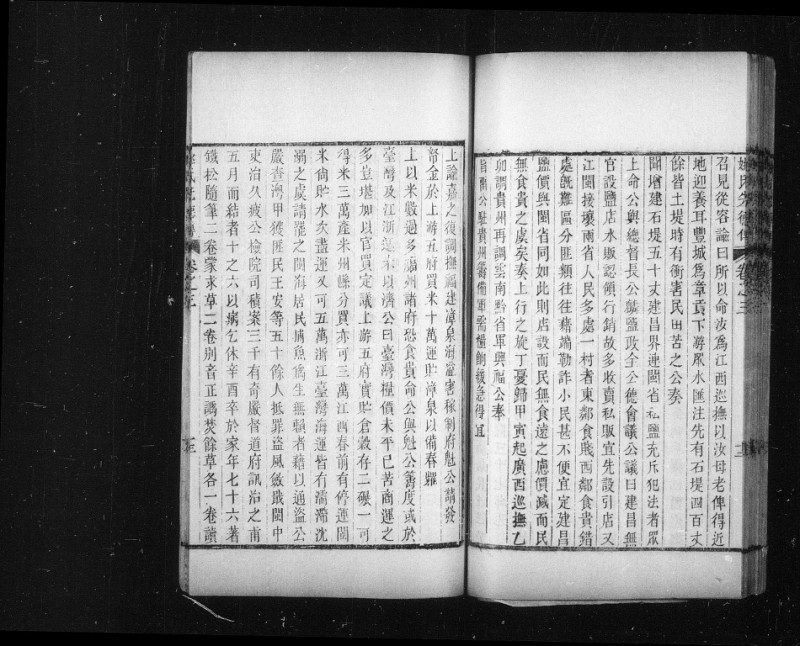 召見從容諭曰所以命汝爲江西巡撫以汝母老俾得近
地迎養耳豐城爲章貢下游眾水匯注先有石堤四百丈
餘皆土堤時有衝害民田苦之公奏
聞增建石堤五十丈建昌界連閩省私鹽充斥犯法者眾
上命公與總督長公鹽政全公德會議公議曰建昌無
官設鹽店水販認領行銷故多收賣私販宜先設引店又
江閩接壤兩省人民多處一村者東鄰食賤西鄰食貴錯
處旣難區分匪類往往藉端勒詐小民甚不便宜定建昌
鹽價與閩省同如此則店設而民無食遠之慮價減而民
無食貴之虞矣奏上行之旋丁憂歸甲寅起廣西巡撫乙
卯調貴州再調雲南黔省軍興福公奏
旨留公駐貴州籌備軍需糧餉緩急得宜
上諭嘉之復調撫福建漳泉海溢害稼制府魁公請發
帑金於上游五府買米十萬運貯漳泉以備春糶
上以米數過多福州諸府恐食貴命公與魁公籌度或於
臺灣及江浙運米以濟公曰臺灣糧價未平已苦商運之
多豈堪加以官買定議上游五府實貯倉穀存二碾一可
得米三萬產米州縣分買亦可三萬江西春前有停運閩
米尚貯水次盡運又可五萬浙江臺灣海運皆有濡滯沈
溺之虞請罷之閩海居民捕魚爲生無賴者藉以通盜公
嚴查澳甲獲匪民王安等五十餘人抵罪盜風斂戢閩中
吏治久疲公檢院司積案三千有奇嚴督道府訊治之甫
五月而結者十之六以病乞休辛酉卒於家年七十六著
鐵松隨筆二卷蒙求草二卷別音正譌焚餘草各一卷讀